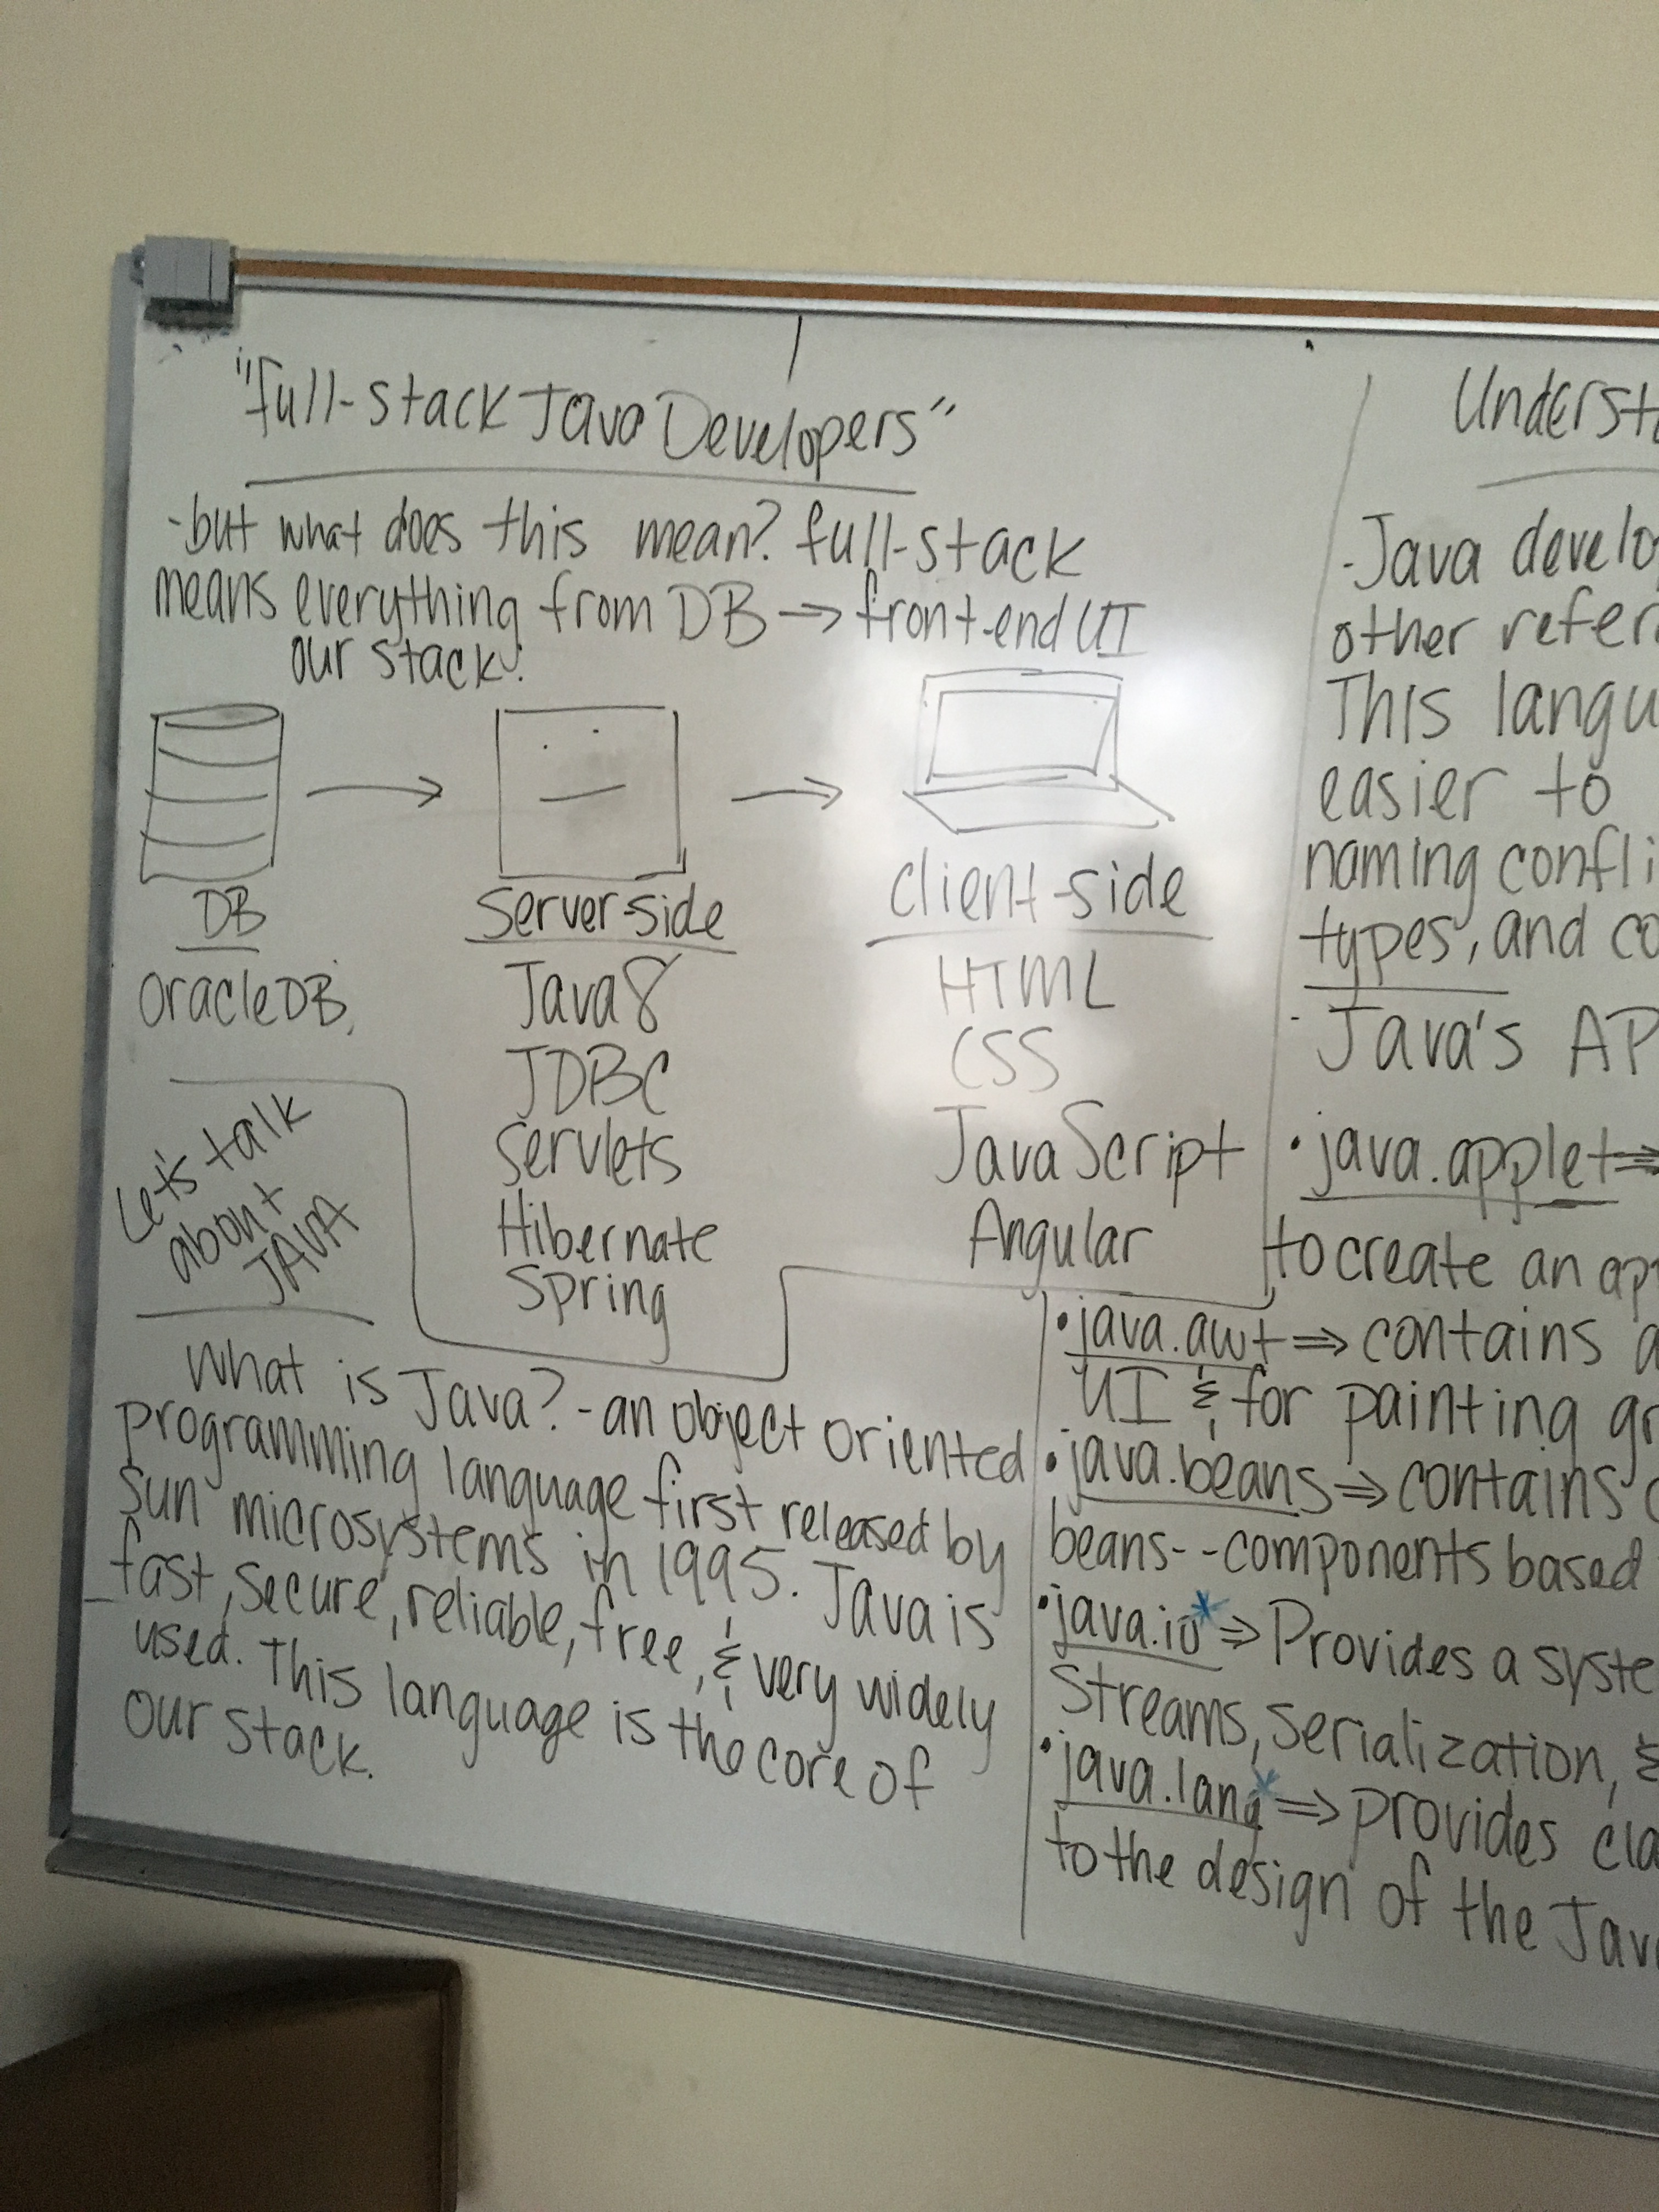 "full-stack Java Developers"
-but what does this mean? full-stack
means everything from DB → front-end UI
our stack:
DB
OracleDB,
Server-side
Java 8
JDBC
Servlets
Hibernate
Spring
client-side
HTML
CSS
JavaScript
Angular
Let's talk
about
JAVA
What is Java? - an object oriented
programming language first released by
Sun microsystems in 1995. Java is
fast, secure, reliable, free, & very widely
used. This language is the core of
our stack.
-Java
other
This
easier to
naming
types, and
- Java's
•java.applet ⇒
to create an
•java.awt ⇒ contains
UI & for painting
•java.beans ⇒ contains
beans--components based
•java.io* ⇒ Provides a
Streams, serialization, &
•java.lang* ⇒ provides
to the design of the